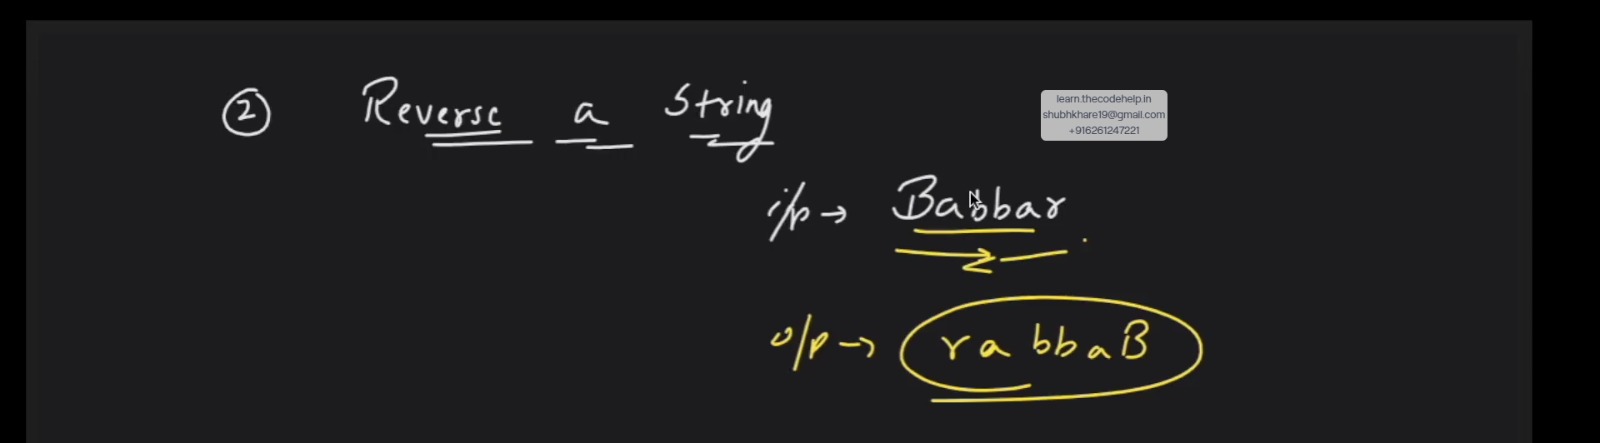 ② Reverse a String
learn.thecodehelp.in
shubhkhare19@gmail.com
+916261247221
i/p → Babbar
o/p → rabbaB